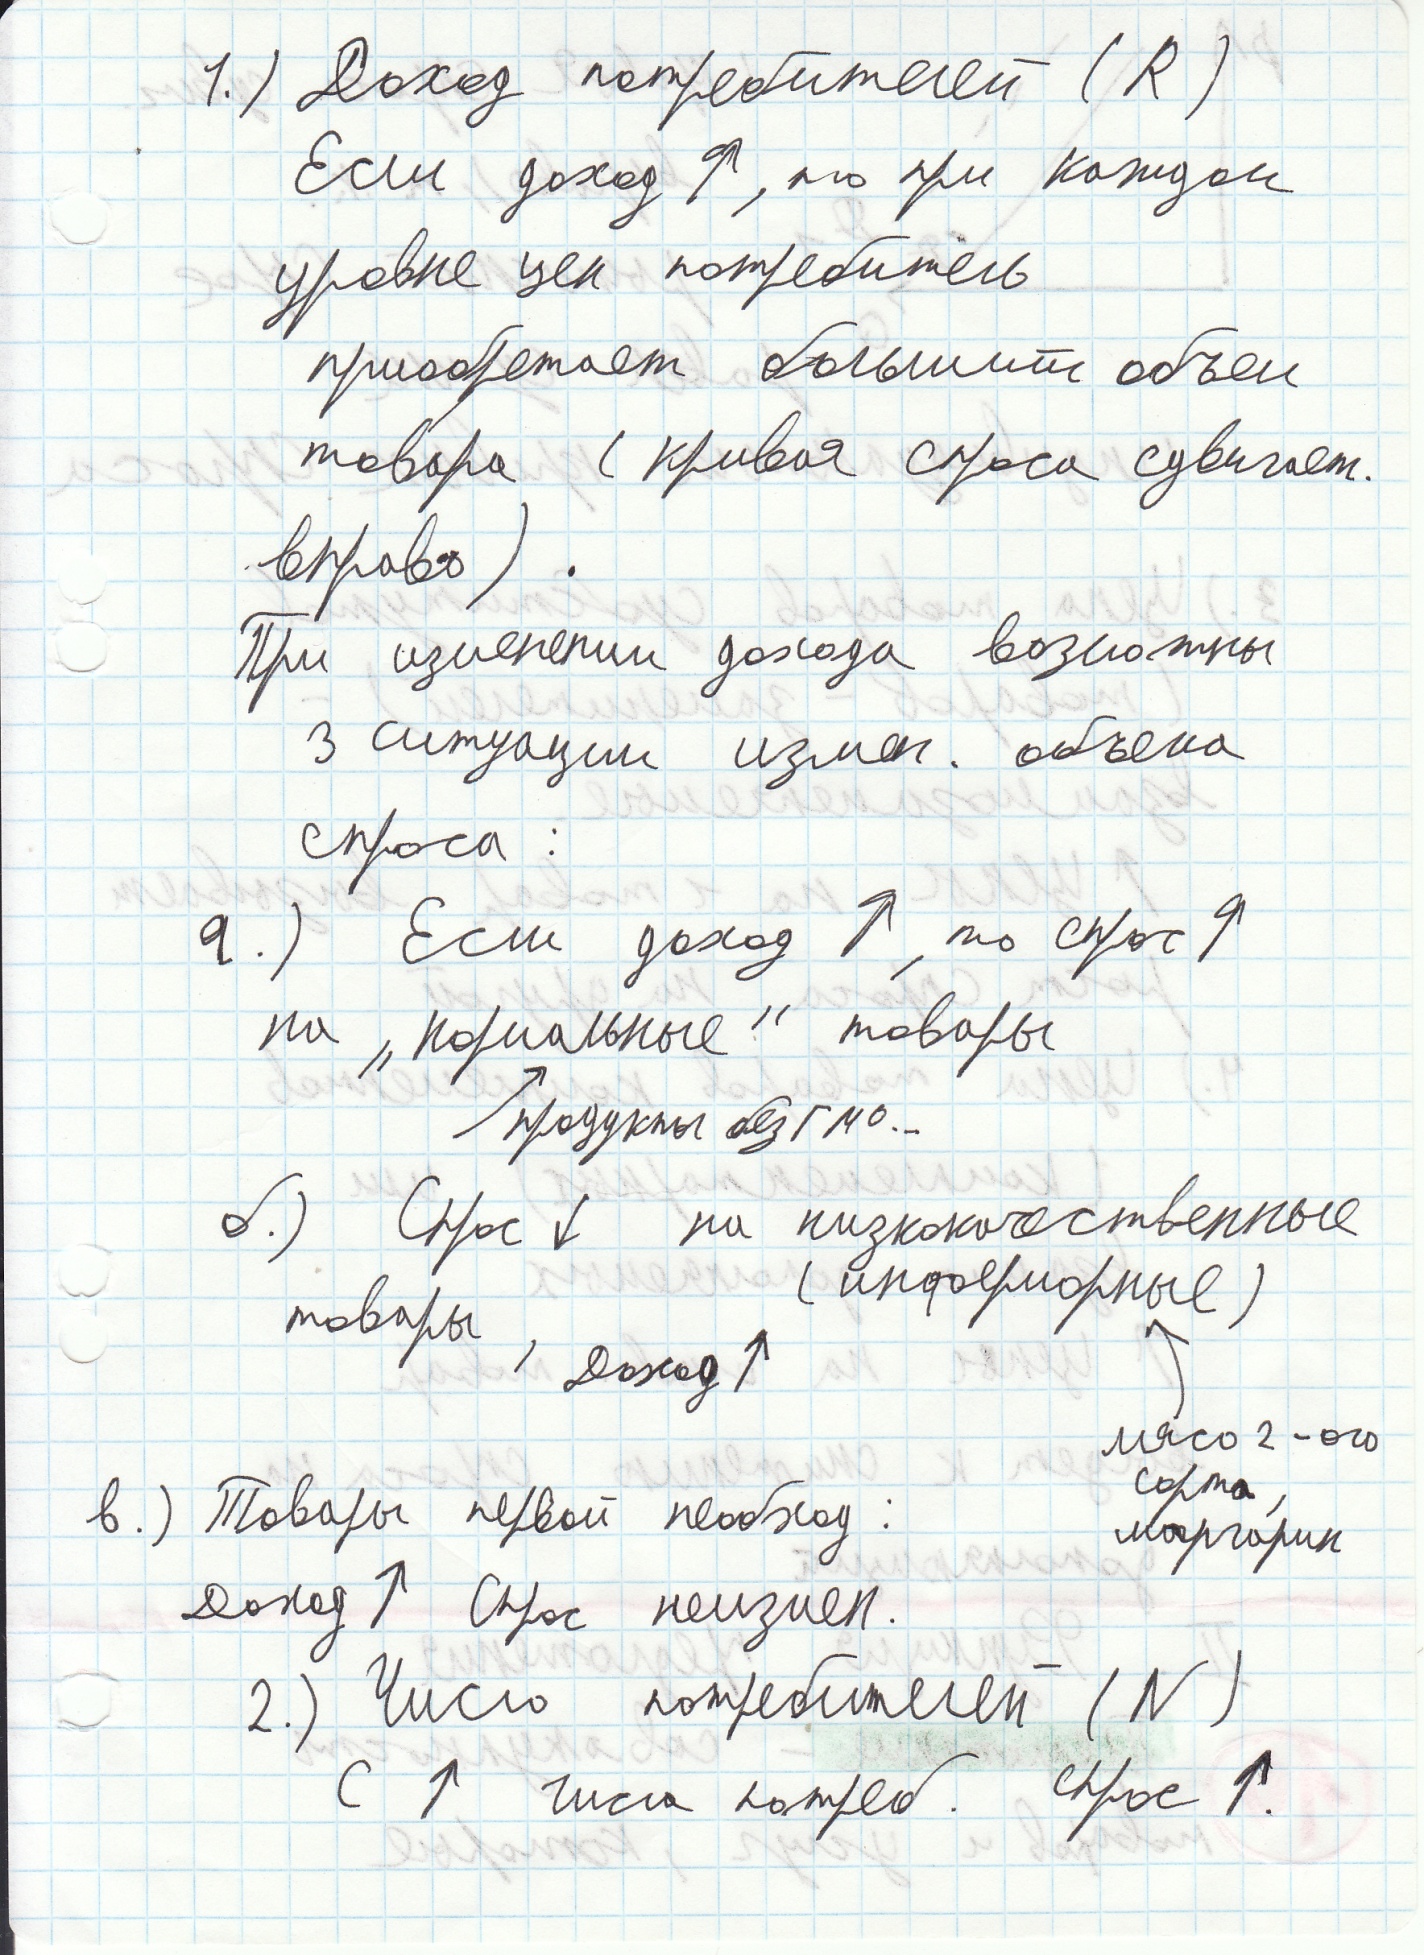 1.) Доход потребителей (R)
Если доход ↑, то при каждом
уровне цен потребитель
приобретает больший объем
товара (кривая спроса сдвигает.
вправо).
При изменении дохода возможны
3 ситуации измен. объема
спроса:
а.) Если доход ↑, то спрос ↑
на „нормальные" товары
продукты без ГМО...
б.) Спрос ↓ на низкокачественные
(инфериорные)
товары, Доход ↑
мясо 2-ого
сорта,
маргарин
в.) Товары первой необход:
Доход ↑ Спрос неизмен.
2.) Число потребителей (N)
С ↑ числа потреб. спрос ↑.